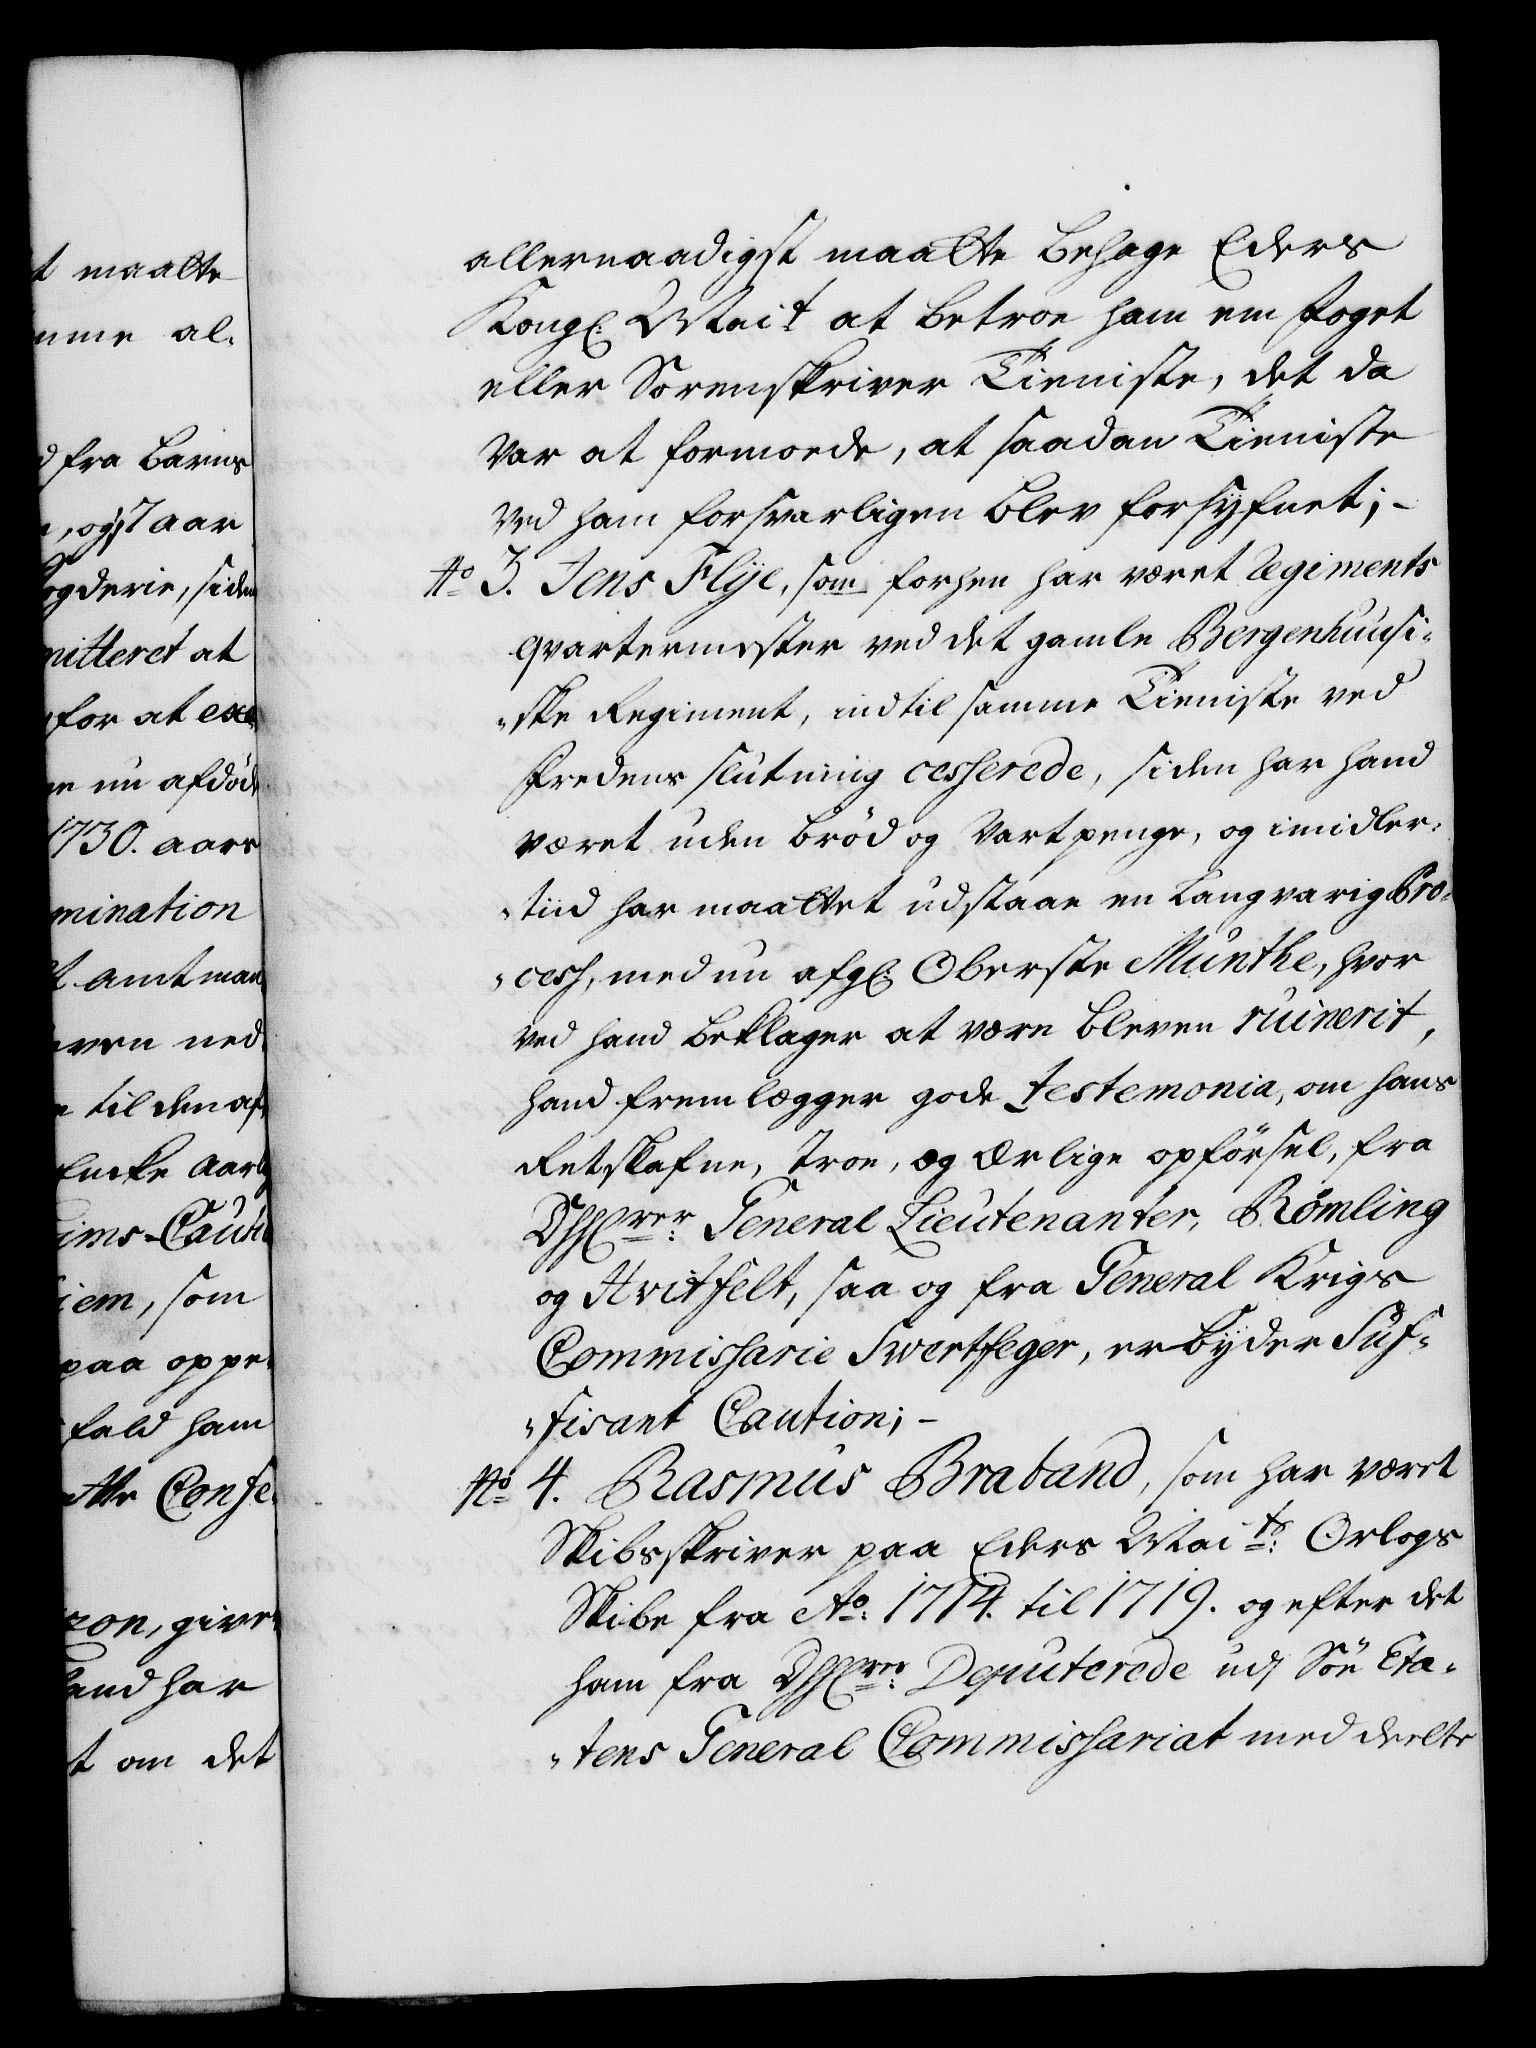 t maatte
mme al-
d fra Barns
, og 7 aar
ogderie, siden
mitteret at
for at exe
nu afdöde
1730. aars
mination
t amtman
ven ned
til den af
Encke aarl
ims-Cauti
iem, som
paa oppe
fald ham
tte Confe
ron, give
hand har
t om det
allernaadigst maatte behage Eders
Kongl: Mait at betroe ham en Foget
eller Sorenskriver Tieniste, det da
var at formoede, at saadan Tieniste
ved ham forsvarligen blev forsyfnet; -
No 3. Jens Flÿe, som forhen har været Regiments
qvartermester ved det gamle Bergenhuusi-
-ske Regiment, indtil samme Tieniste ved
Fredens slutning cesserede, siden har hand
været uden bröd og Vartpenge, og imidler-
-tiid har maattet udstaae en langvarig Pro-
-cess, med nu afgl: Oberste Munthe, hvor
ved hand beklager at være bleven ruinerit,
hand fremlægger gode testemonia, om hans
Retskafne, troe, og Ærlige opförsel, fra
DHHrer: General Lieutenanter, Römling
og Hvitfelt, saa og fra General Krigs
Commissarie Swertfeger, erbÿder Suf-
-fisant Caution; -
No 4. Rasmus Braband, som har været
Skibsskriver paa Eders Maits: Orlogs
Skibe fra Ao: 1714. til 1719. og efter det
ham fra DHHrer: Deputerede udj Söe Eta-
-tens General Commissariat med deelte